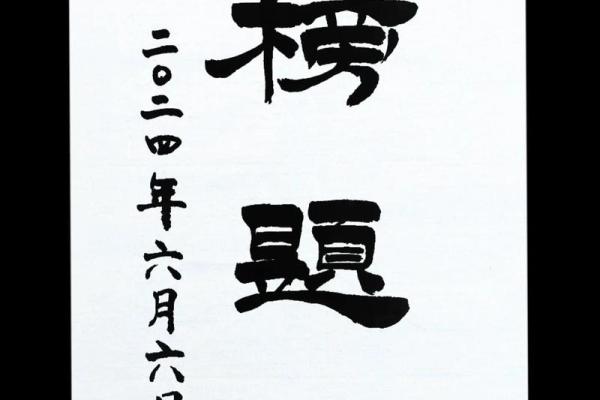 榜題
二〇二四年六月六日